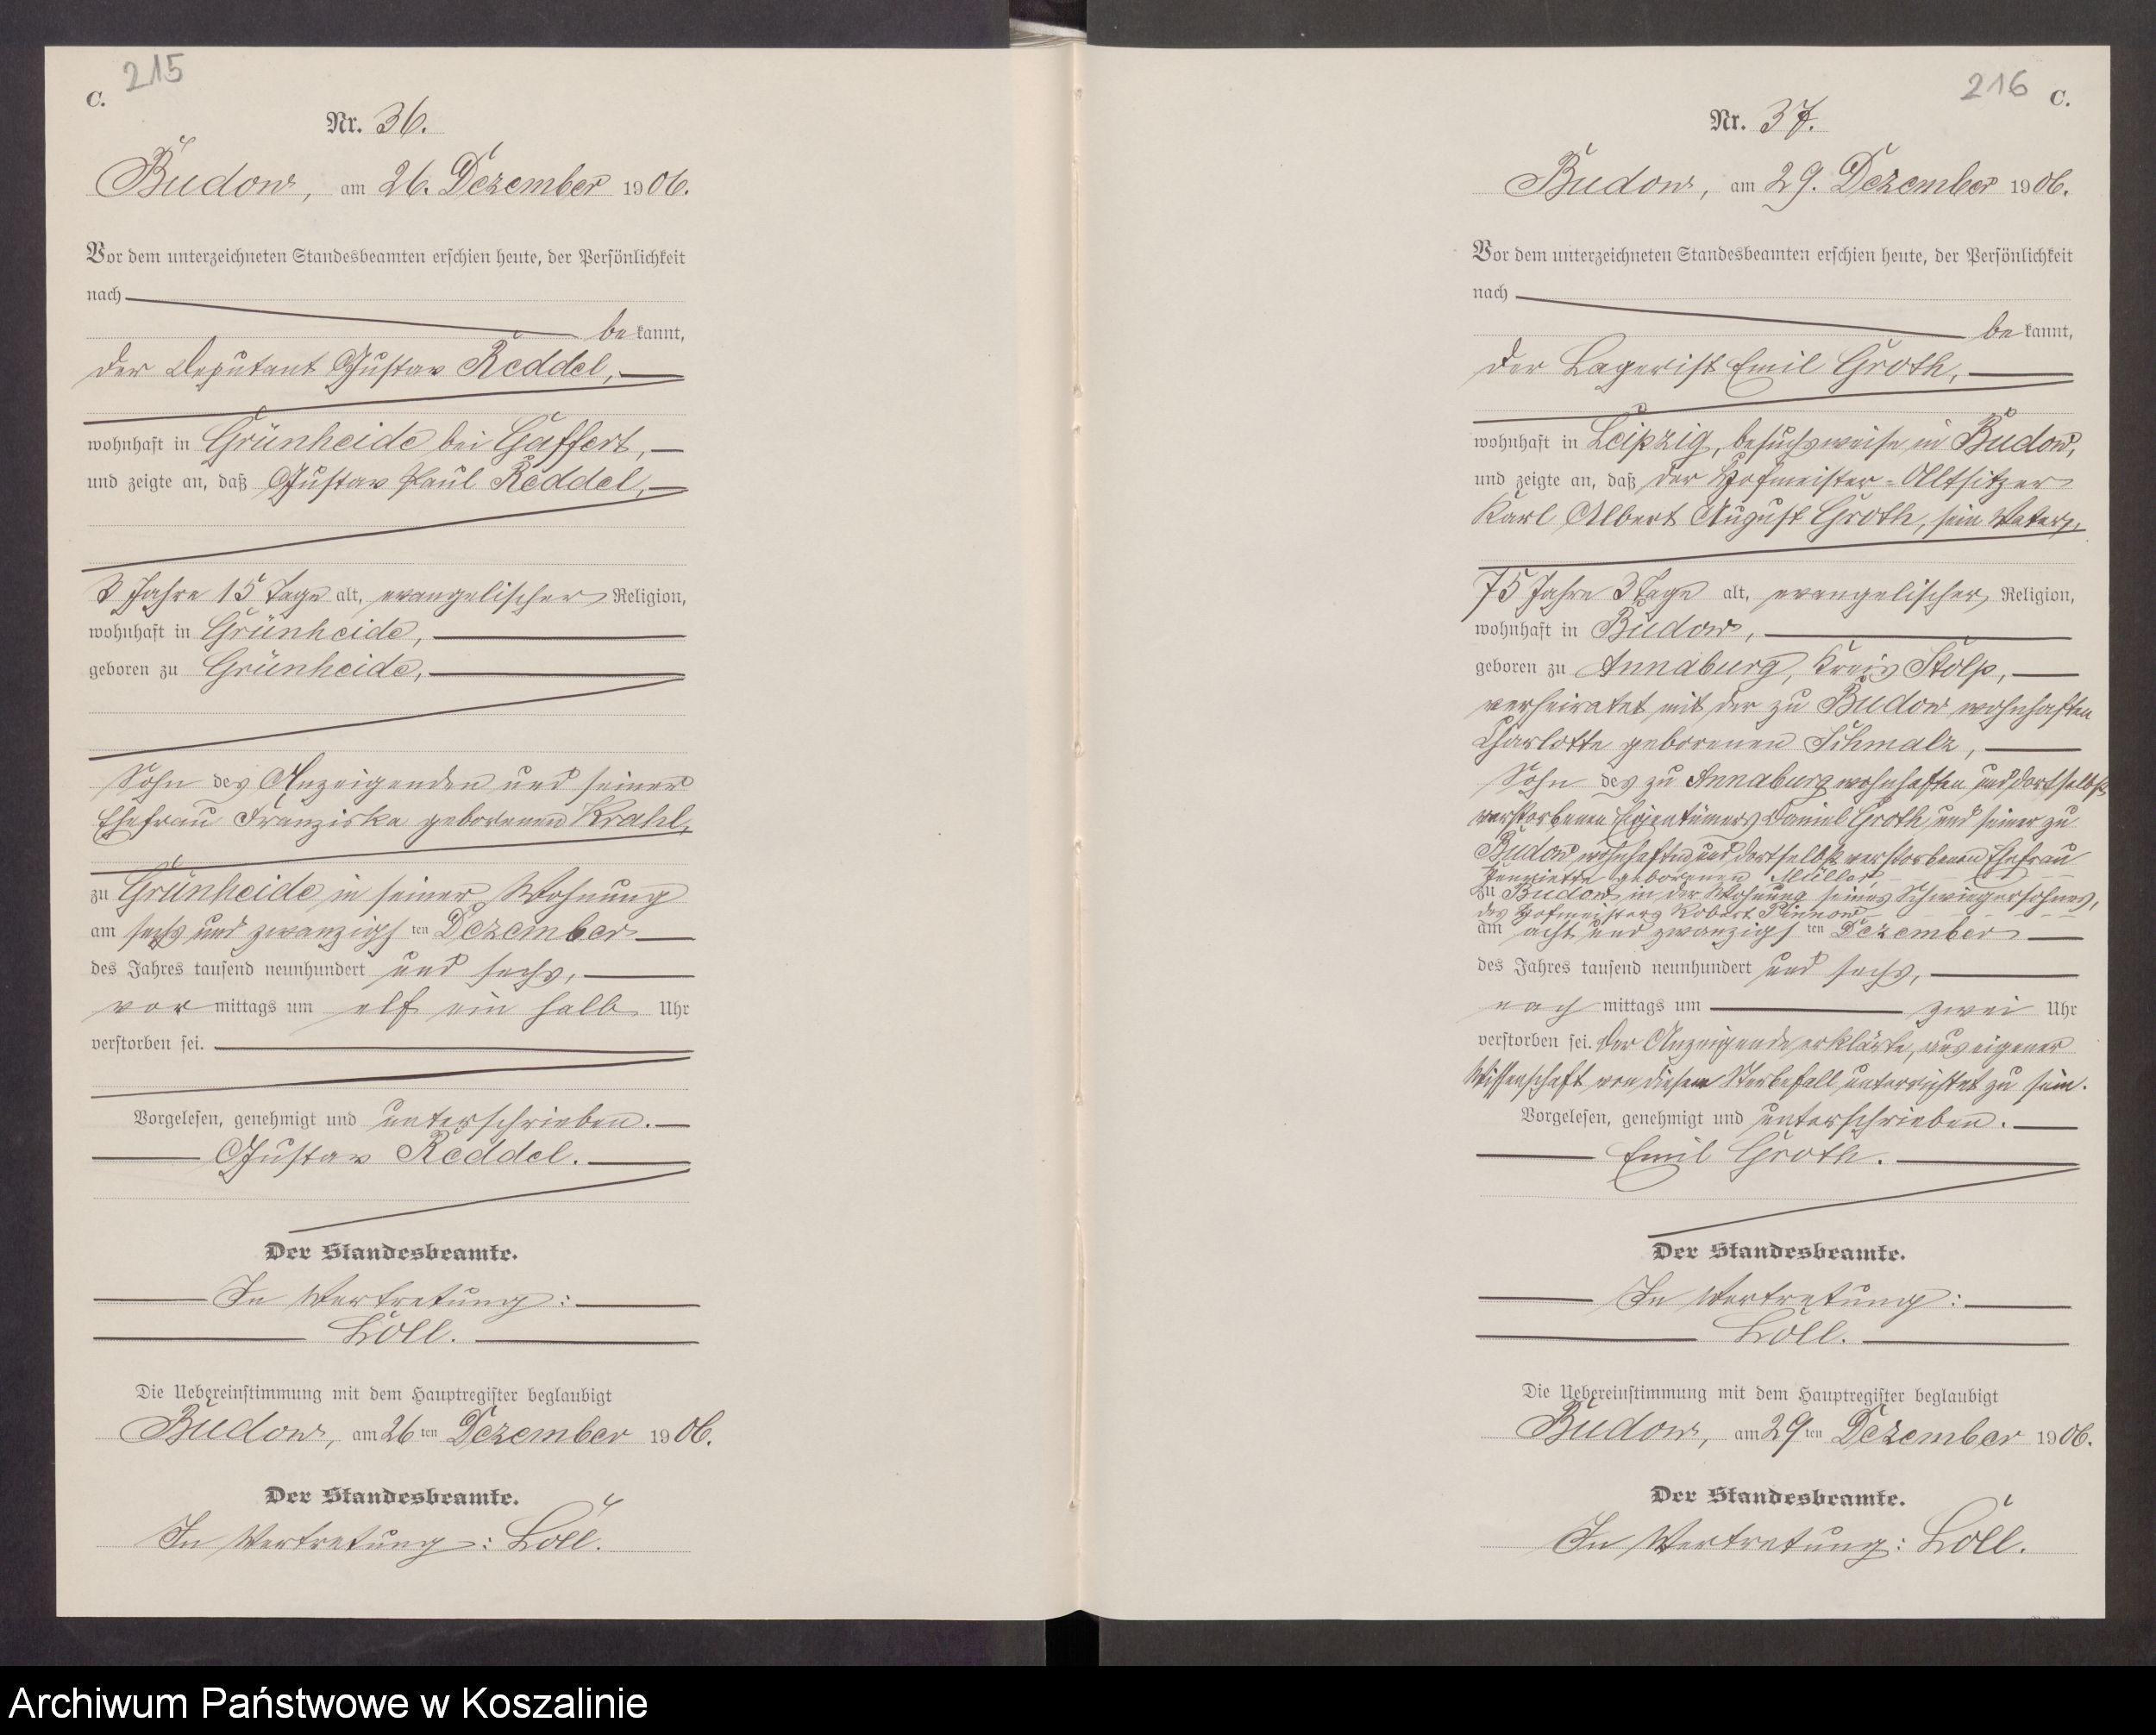 215
C.
Nr. 36.
Budow, am 26. Dezember 1906.
Vor dem unterzeichneten Standesbeamten erschien heute, der Persönlichkeit
nach
be kannt,
der Deputant Gustav Reddel,
wohnhaft in Grünheide bei Gaffert,
und zeigte an, daß Gustav Paul Reddel,
3 Jahre 15 Tage alt, evangelischer Religion,
wohnhaft in Grünheide,
geboren zu Grünheide,
Sohn des Anzeigenden und seiner
Ehefrau Franziska geborenen Krahl,
zu Grünheide in seiner Wohnung
am sechs und zwanzigs ten Dezember
des Jahres tausend neunhundert und sechs,
vor mittags um elf ein halb Uhr
verstorben sei.
Vorgelesen, genehmigt und unterschrieben.
Gustav Reddel.
Der Standesbeamte.
In Vertretung:
Löll.
Die Uebereinstimmung mit dem Hauptregister beglaubigt
Budow, am 26 ten Dezember 1906.
Der Standesbeamte.
In Vertretung: Löll.
216
C.
Nr. 37.
Budow, am 29. Dezember 1906.
Vor dem unterzeichneten Standesbeamten erschien heute, der Persönlichkeit
nach
be kannt,
der Lagerist Emil Groth,
wohnhaft in Leipzig, besuchsweise in Budow,
und zeigte an, daß der Hofmeister-Altsitzer
Karl Albert August Groth, sein Vater,
75 Jahre 3 Tage alt, evangelischer Religion,
wohnhaft in Budow,
geboren zu Annaburg, Kreis Stolp,
verheiratet mit der zu Budow wohnhaften
Charlotte geborenen Schmalz,
Sohn des zu Annaburg wohnhaften und dortselbst
verstorbenen Eigentümers Daniel Groth und seiner zu
Budow wohnhaften und dortselbst verstorbenen Ehefrau
Henriette geborenen Müller
zu Budow in der Wohnung seines Schwiegersohnes,
des Hofmeisters Robert Pinnow
am acht und zwanzigs ten Dezember
des Jahres tausend neunhundert und sechs,
nach mittags um zwei Uhr
verstorben sei. Der Anzeigende erklärte, aus eigener
Wissenschaft von diesem Sterbefall unterrichtet zu sein.
Vorgelesen, genehmigt und unterschrieben.
Emil Groth.
Der Standesbeamte.
In Vertretung:
Löll.
Die Uebereinstimmung mit dem Hauptregister beglaubigt
Budow, am 29 ten Dezember 1906.
Der Standesbeamte.
In Vertretung: Löll.
Archiwum Państwowe w Koszalinie